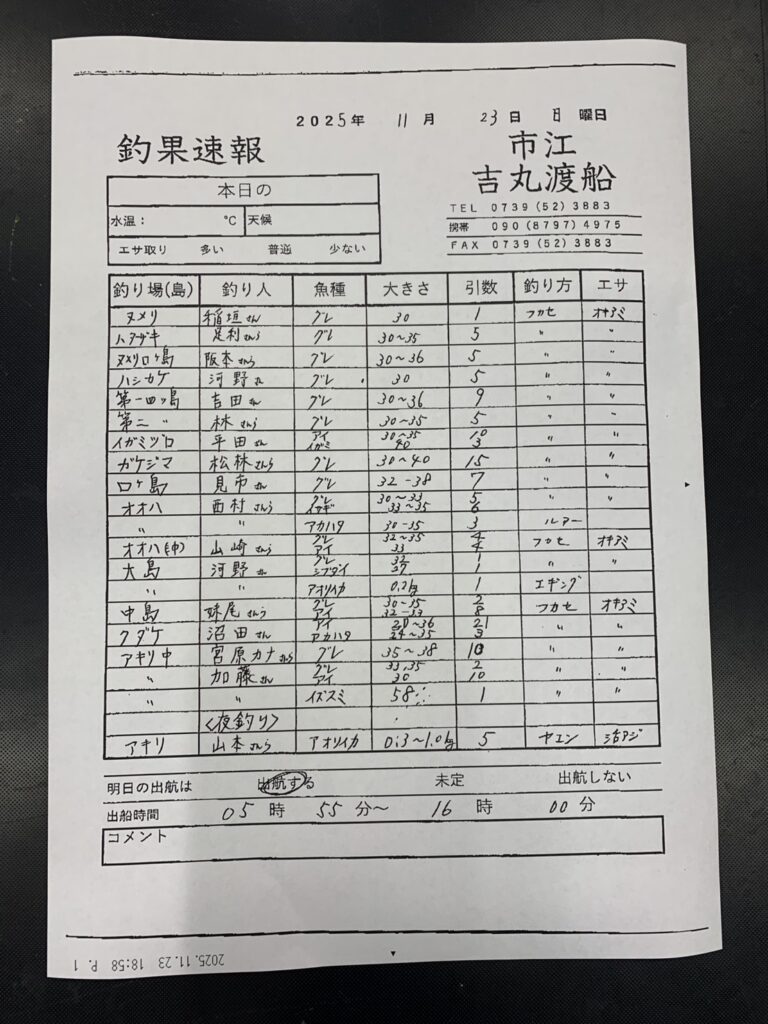 2025年 11月 23日 日曜日
釣果速報
市江
吉丸渡船
TEL 0739(52)3883
携帯 090(8797)4975
FAX 0739(52)3883
本日の
水温: ℃ 天候
エサ取り 多い 普通 少ない
釣り場(島) 釣り人 魚種 大きさ 引数 釣り方 エサ
ヌメリ 稲垣さん グレ 30 1 フカセ オキアミ
足利さんら グレ 30~35 5 〃 〃
ヌメリロヶ島 阪本さんら グレ 30~36 5 〃 〃
ハシカケ 河野さん グレ 30 5 〃 〃
第一四ッ島 吉田さん グレ 30~36 9 〃 〃
第二 〃 林さんら グレ 30~35 5 〃 〃
イガミヅロ 平田さん アイ 30~35 10 〃 〃
イガミ 40 3
ガケジマ 松林さんら グレ 30~40 15 〃 〃
口ヶ島 見市さん グレ 32-38 7 〃 〃
オオハ 西村さんら グレ 30~33 5 〃 〃
イサギ 33~35 6
〃 〃 アカハタ 30-35 3 ルアー
オオハ(中) 山崎さんら グレ 32~35 4 フカセ オキアミ
アイ 33 4
大島 河野さん グレ 32 1 〃 〃
シブダイ 37 1
〃 〃 アオリイカ 0.2kg 1 エギング
中島 妹尾さんら グレ 30-35 2 フカセ オキアミ
アイ 32-33 8
クダケ 沼田さん アイ 28~36 21 〃 〃
アカハタ 24~35 3
アキリ中 宮原カナさんら グレ 35~38 10 〃 〃
〃 加藤さん グレ 33.35 2 〃 〃
アイ 30 10
〃 〃 イズスミ 58 1 〃 〃
<夜釣り>
アキリ 山本さんら アオリイカ 0.3~1.0kg 5 ヤエン 活アジ
明日の出航は 出航する 未定 出航しない
出船時間 05時 55分~ 16時 00分
コメント
2025.11.23 18:58 P. 1